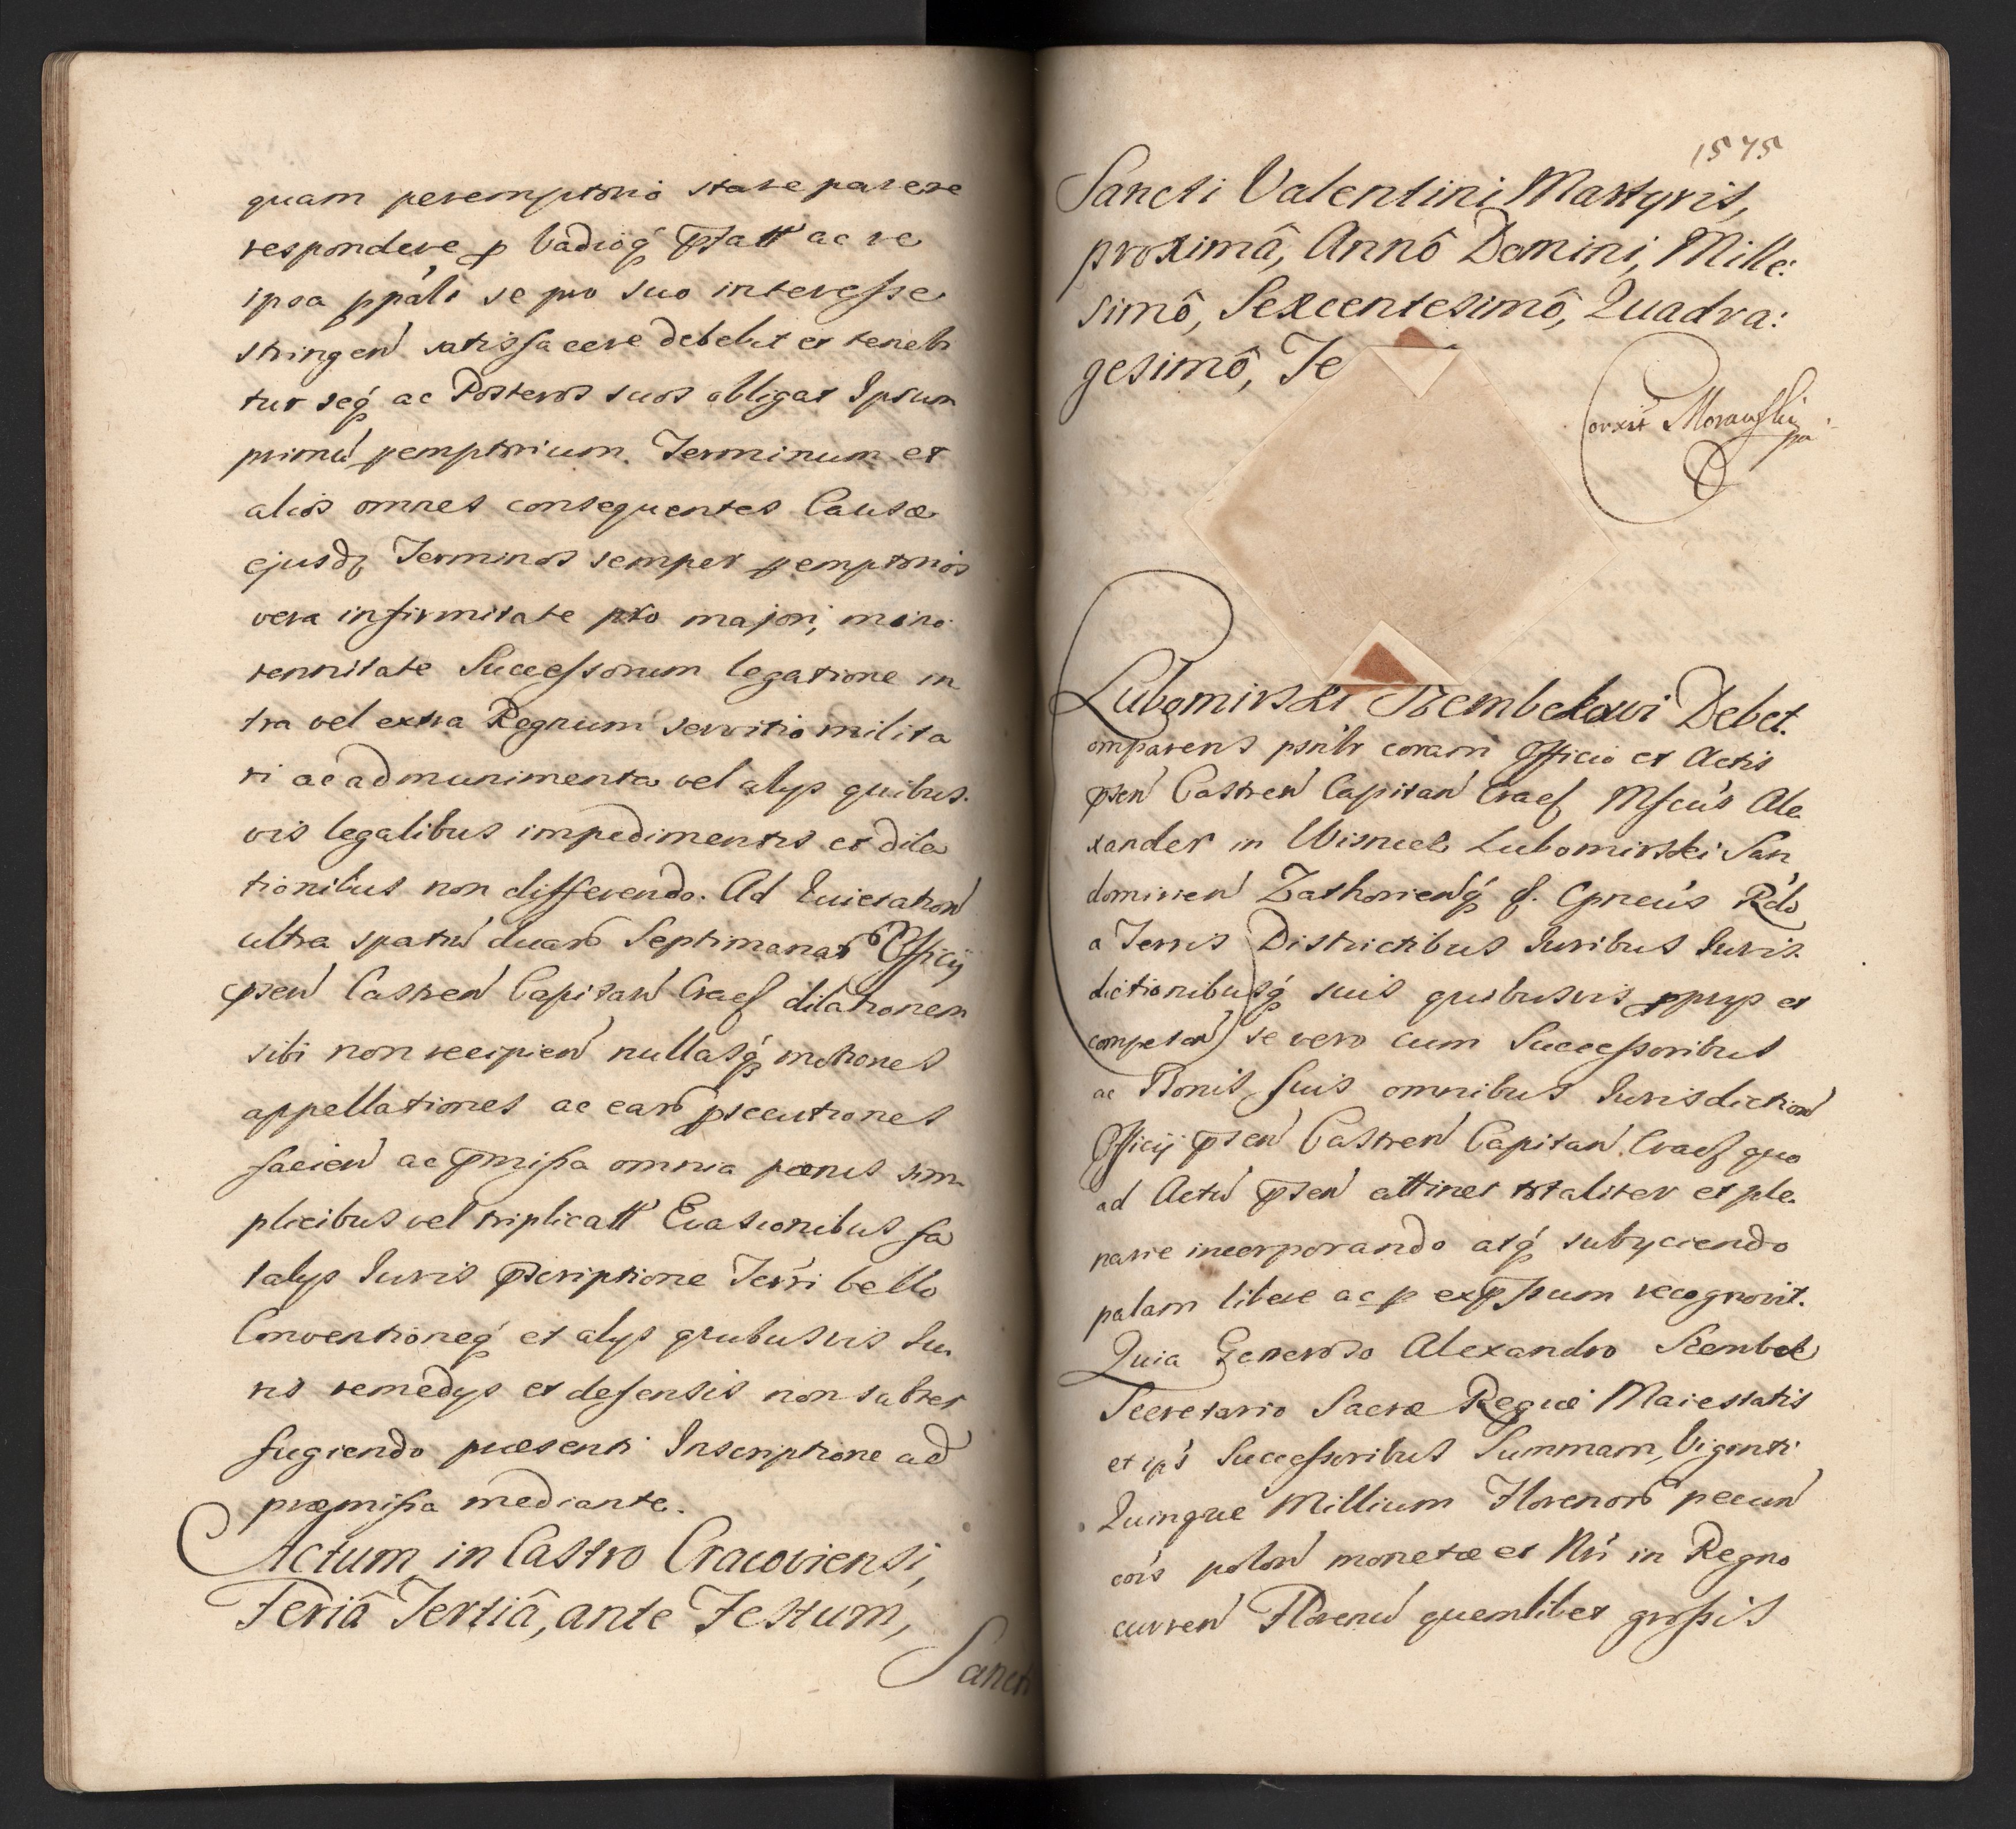 quam peremptorio stare parere
respondere p Vadioq́ pstatt ac re
ipsa ppali se pro suo interesse
stringen satisfacere debebit et teneb
tur seq́ ac Posteros suos obligat Ipsum
primu pemptorium Terminum et
alios omnes consequentes Causæ
ejusdq Terminos semper pemptorios
vera infirmitate pro majori, mino
rennitate Successorum legatione in
tra vel extra Regnum servitio milita
ri ac ad munimenta vel alys quibus
vis legalibus impedimentis et dila
tionibus non differendo. Ad Evictation
ultra spatiu duar Septimanar Officij
psen Castren Capitan Cracf dilationem
sibi non recipien nullasq́ motiones
appellationes ac ear psecutiones
facien ac pmissa omnia pœnis sim
plicibus vel triplicatt Evasionibus fa
talys Iuris pscriptione Terri bello
Conventioneq́ et alys quibusvis Iu
ris remedys et defensis non subter
fugiendo præsenti Inscriptione ad
præmissa mediante.
Actum in Castro Cracoviensi,
Feriâ Tertiâ, ante Festum,
Sancti
1575
Sancti Valentini Martyris,
proximâ, Annô Domini, Mille:
simô, Sexcentesimô, Quadra:
gesimô, Te
Corxit Morawski
pa
Lubomirski Szembekowi Debet.
omparens psntr coram Officio et Actis
psen Castren Capitan Cracf Mfcus Ale
xander in Wisnicz Lubomirski San
domirien Zathorienq́ Cpneus Rdo
a Terris Districtibus Iuribus Iuris
dictionibusq́ suis quibusvis pprys et
competen se vero cum Successoribus
ac Bonis suis omnibus Iurisdiction
Officij psen Castren Capitan Cracf quo
ad Actu psen attinet totaliter et ple
narie incorporando atq́ subyciendo
palam libere ac p expssum recognovit.
Quia Generoso Alexandro Szembek
Secretario Sacræ Regiæ Maiestatis
et ips Successoribus Summam, Viginti
Quinque Millium Florenor pecun
cois polon monetæ et Nri in Regno
curren Florenu quemlibet grossis